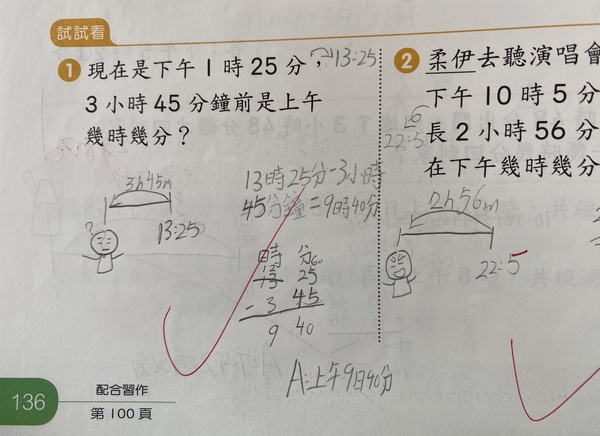 試試看
1 現在是下午1時25分，
→13:25
3小時45分鐘前是上午
幾時幾分？
3h45m
?
13:25
13時25分-3小時
45分鐘=9時40分
時 分
12 60
13 25
- 3 45
9 40
A:上午9日40分
2 柔伊去聽演唱會
下午10時5分
22:5
長2小時56分
在下午幾時幾分
2h56m
22:5
136
配合習作
第100頁